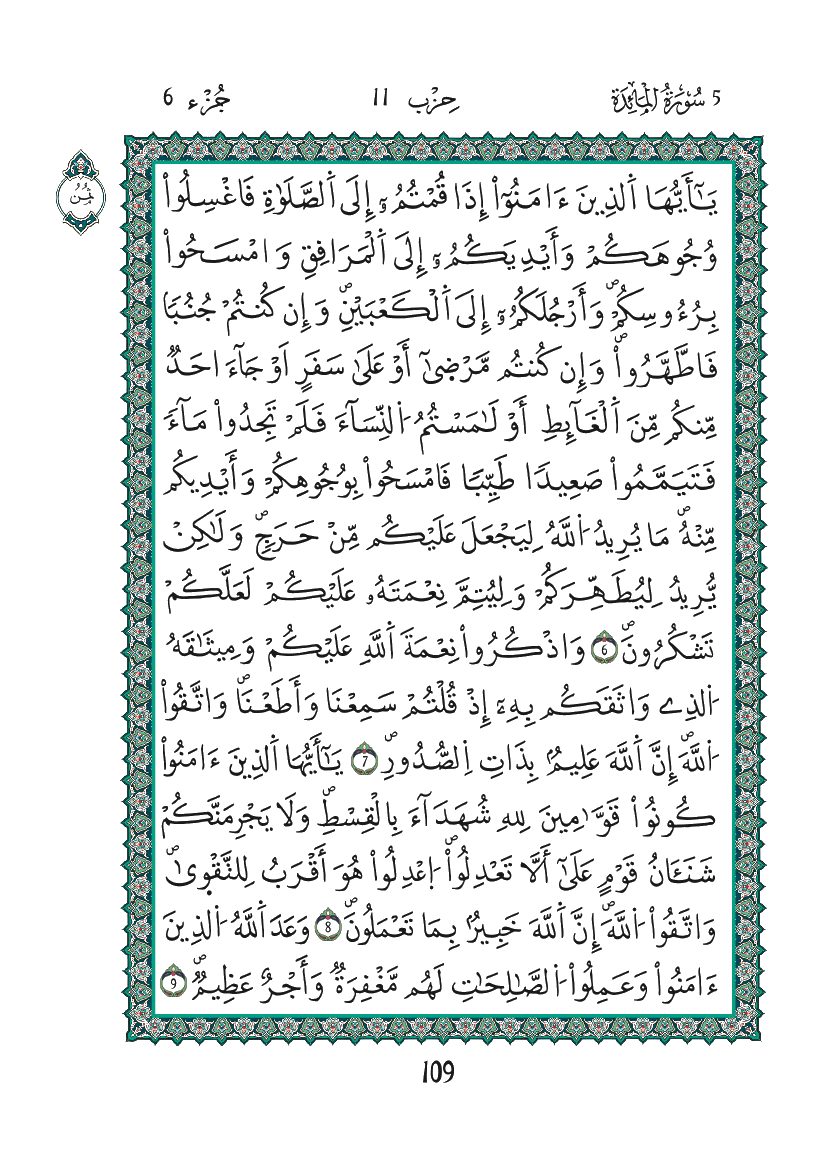 5 سُورَةُ الْمَائِدَة
حِزْب 11
جُزْء 6
ثُمُن
يَٰٓأَيُّهَا اَ۬لذِينَ ءَامَنُوٓاْ إِذَا قُمْتُمُۥٓ إِلَى اَ۬لصَّلَوٰةِ فَاغْسِلُواْ
وُجُوهَكُمْ وَأَيْدِيَكُمُۥٓ إِلَى اَ۬لْمَرَافِقِ وَامْسَحُواْ
بِرُءُوسِكُمْۖ وَأَرْجُلَكُمُۥٓ إِلَى اَ۬لْكَعْبَيْنِۖ وَإِن كُنتُمْ جُنُباٗ
فَاطَّهَّرُواْۖ وَإِن كُنتُم مَّرْضَىٰٓ أَوْ عَلَىٰ سَفَرٍ اَوْ جَآءَ احَدٌ
مِّنكُم مِّنَ اَ۬لْغَآئِطِ أَوْ لَٰمَسْتُمُ اُ۬لنِّسَآءَ فَلَمْ تَجِدُواْ مَآءٗ
فَتَيَمَّمُواْ صَعِيداٗ طَيِّباٗ فَامْسَحُواْ بِوُجُوهِكُمْ وَأَيْدِيكُم
مِّنْهُۖ مَا يُرِيدُ اُ۬للَّهُ لِيَجْعَلَ عَلَيْكُم مِّنْ حَرَجٖۖ وَلَٰكِنْ
يُّرِيدُ لِيُطَهِّرَكُمْ وَلِيُتِمَّ نِعْمَتَهُۥ عَلَيْكُمْ لَعَلَّكُمْ
تَشْكُرُونَۖ 6 وَاذْكُرُواْ نِعْمَةَ اَ۬للَّهِ عَلَيْكُمْ وَمِيثَٰقَهُ
اُ۬لذِے وَاثَقَكُم بِهِۦٓ إِذْ قُلْتُمْ سَمِعْنَا وَأَطَعْنَاۖ وَاتَّقُواْ
اُ۬للَّهَۖ إِنَّ اَ۬للَّهَ عَلِيمُۢ بِذَاتِ اِ۬لصُّدُورِۖ 7 يَٰٓأَيُّهَا اَ۬لذِينَ ءَامَنُواْ
كُونُواْ قَوَّٰمِينَ لِلهِ شُهَدَآءَ بِالْقِسْطِۖ وَلَا يَجْرِمَنَّكُمْ
شَنَـَٔانُ قَوْمٍ عَلَىٰٓ أَلَّا تَعْدِلُواْۖ اِ۪عْدِلُواْ هُوَ أَقْرَبُ لِلتَّقْوٜىٰۖ
وَاتَّقُواْ اُ۬للَّهَۖ إِنَّ اَ۬للَّهَ خَبِيرُۢ بِمَا تَعْمَلُونَۖ 8 وَعَدَ اَ۬للَّهُ اُ۬لذِينَ
ءَامَنُواْ وَعَمِلُواْ اُ۬لصَّٰلِحَٰتِ لَهُم مَّغْفِرَةٞ وَأَجْرٌ عَظِيمٞۖ 9
109